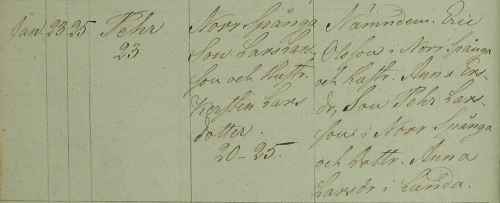 Jan. 23 25 Pehr
23
Norr Spånga
Son Lars Lars
son och Hustr.
Kerstin Lars
dotter.
20-25.
Nämndem. Eric
Olsson i Norr Spånga
och Hustr. Anna Ers
dr, Son Pehr Lars
son i Norr Spånga
och Dottr. Anna
Larsdr i Lunda.